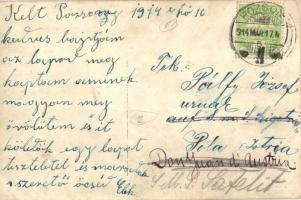 Kelt Pozsony 1914 hó 16
kedves bajtjám
az lapot meg
kaptam aminek
nagyon meg
örvültem ezit
küldök egy lapot
tisztelettel és maradok
szerető öcséd Elek
POZSONY
914 MÁR 17
Tek.
Pálffy József
urnak
Pola Istria
Don Juan d. Austria
S.M.S. Satelit